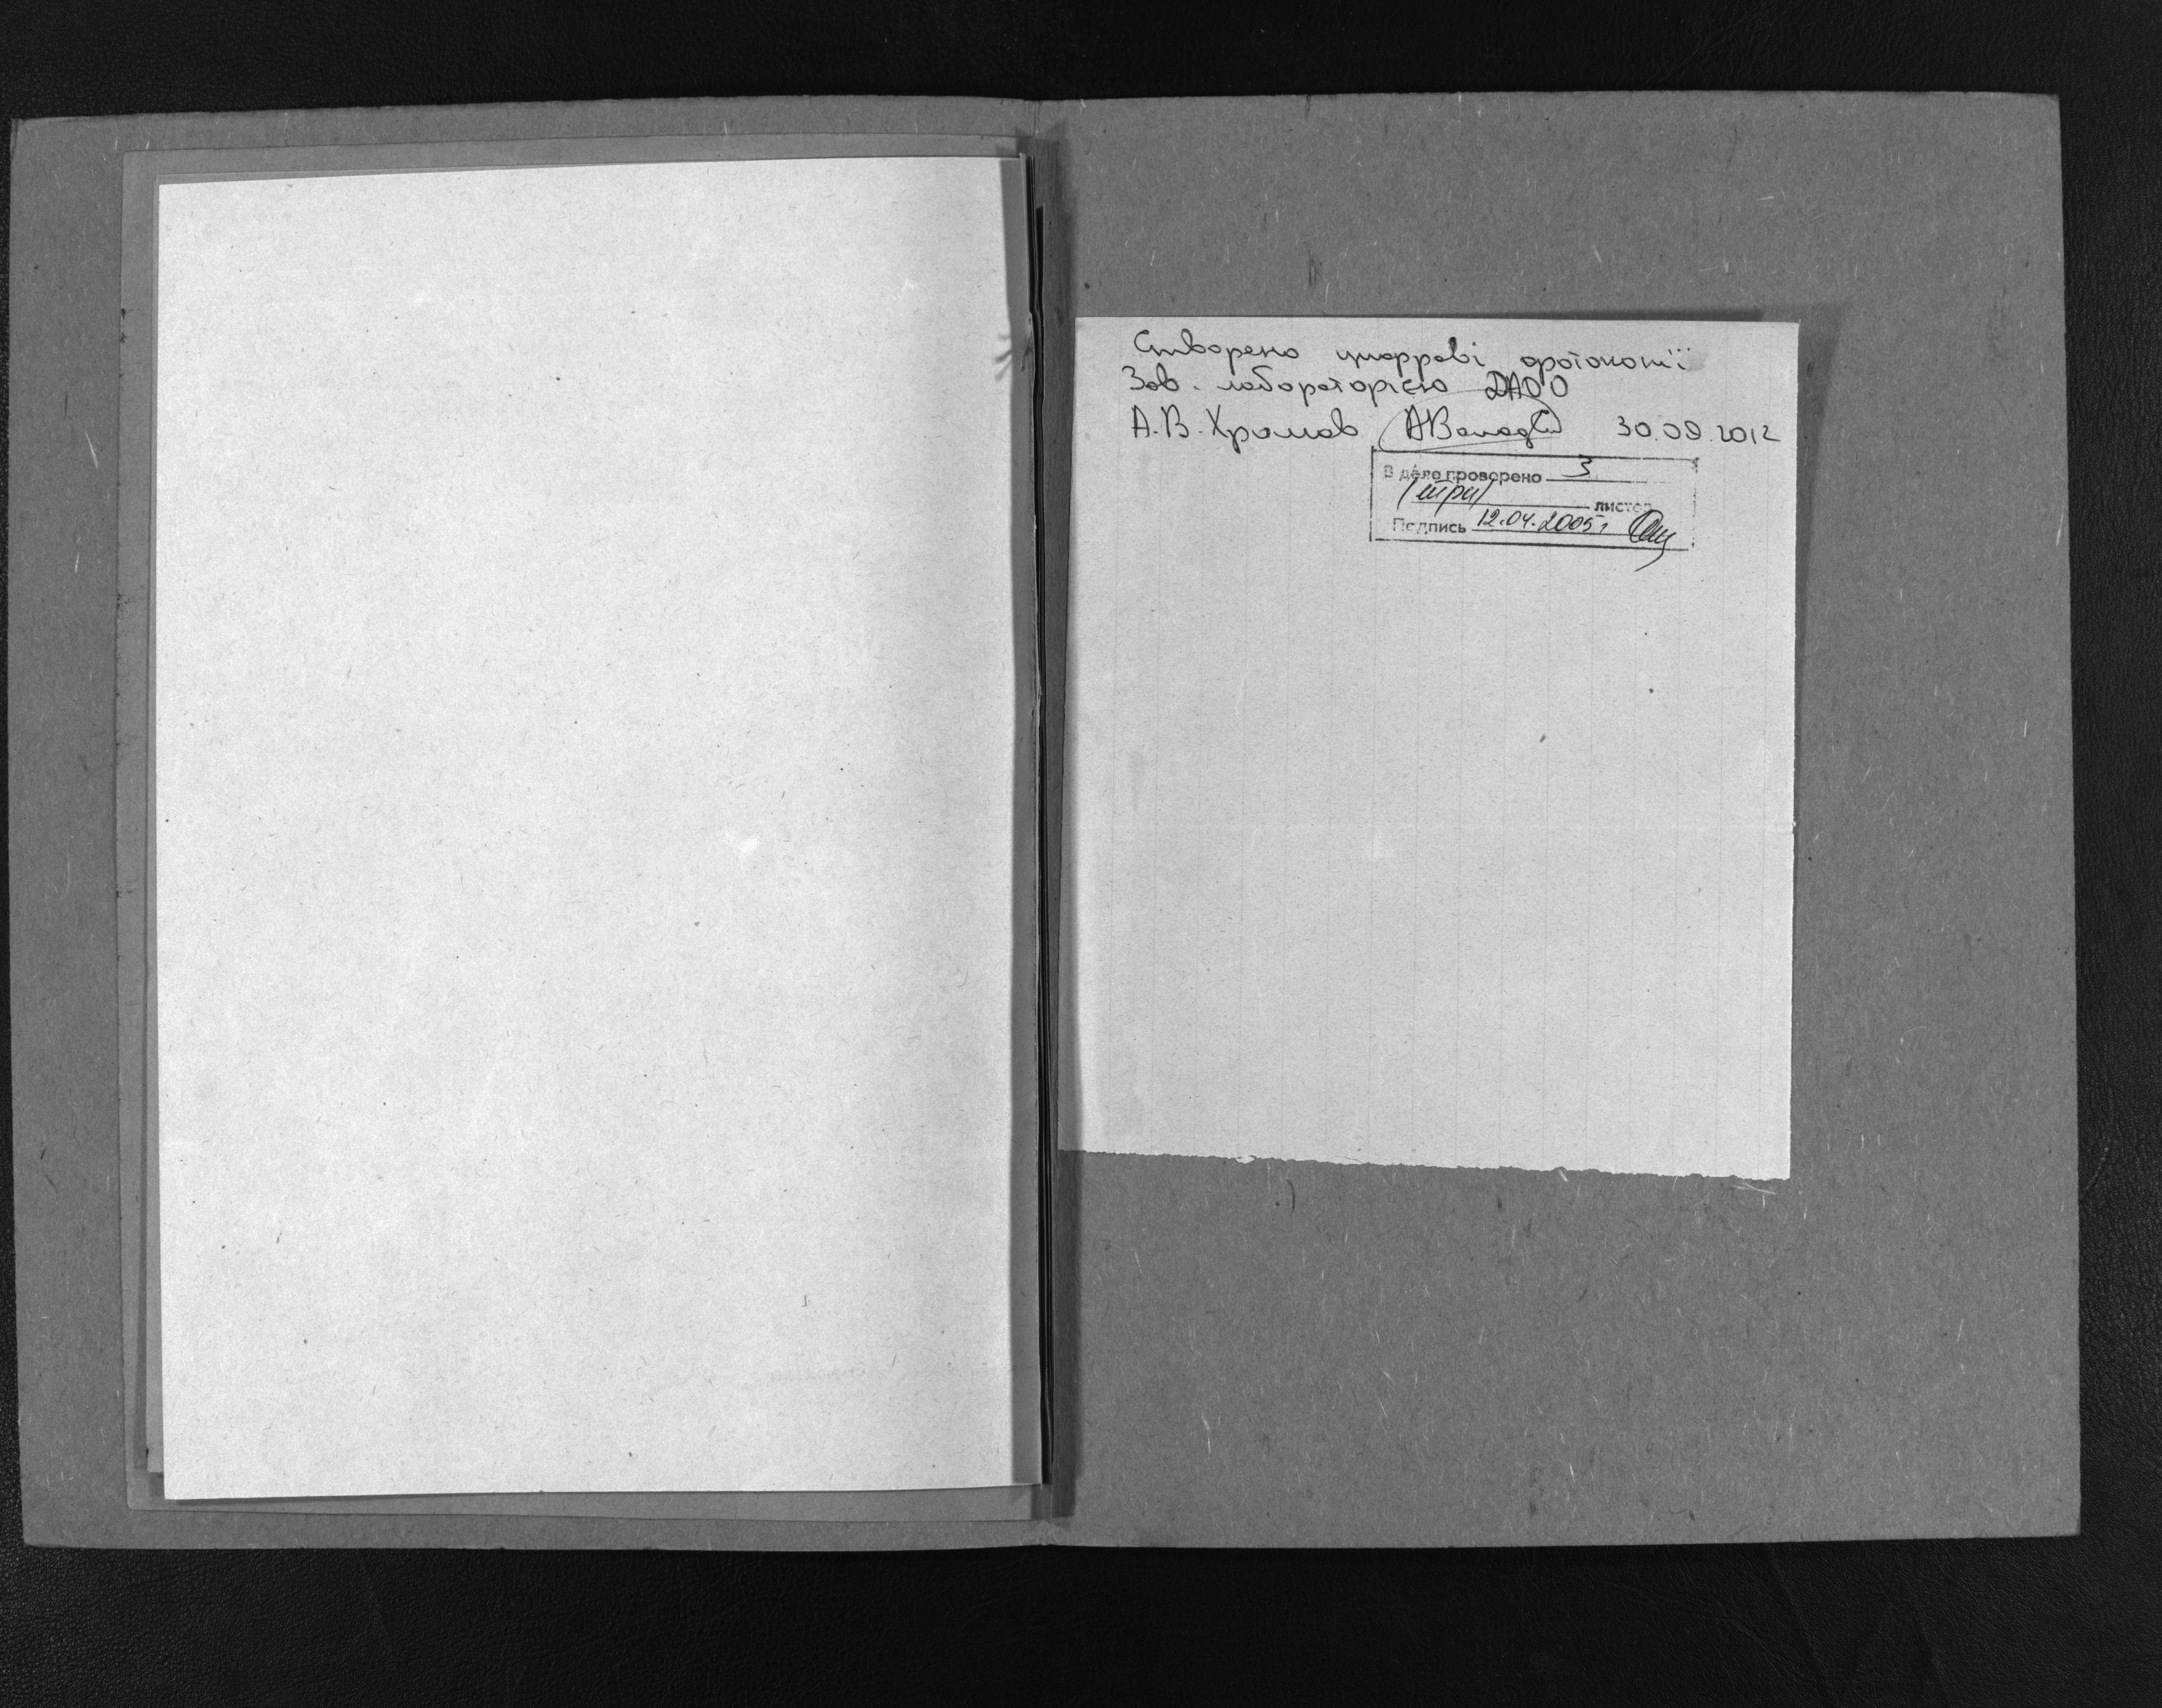 Створено цифрові фотокопії
Зав. лабораторією ДАОО
А.В. Храмов 30.09.2012
В деле проверено 3
(три) листов
Подпись 12.04.2005г